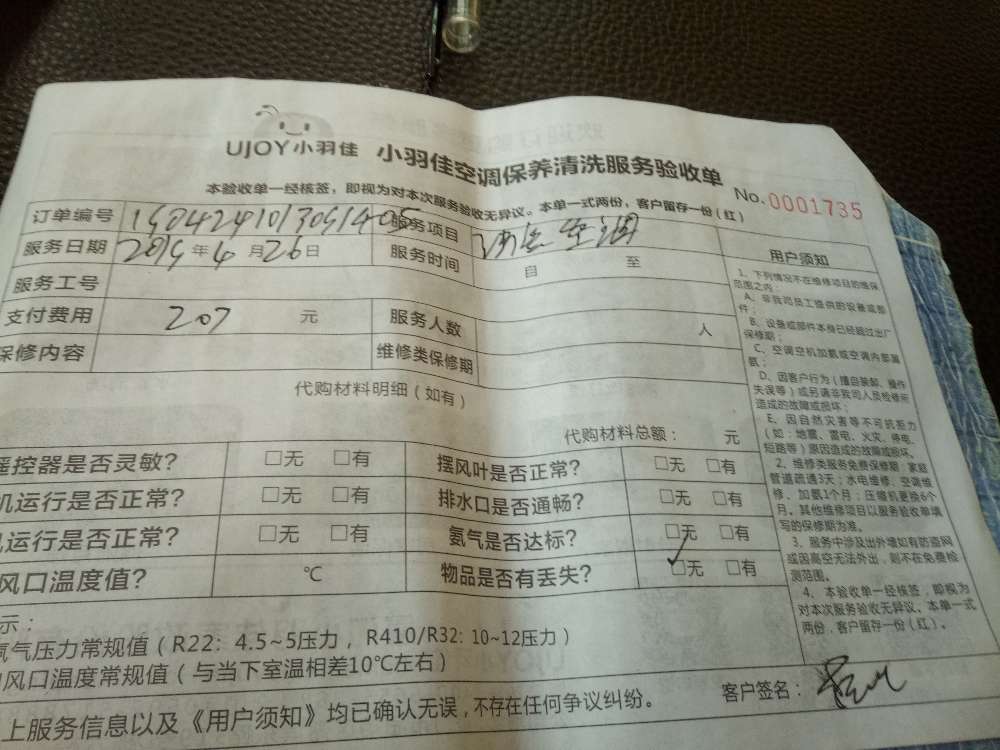 UJOY小羽佳 小羽佳空调保养清洗服务验收单
本验收单一经核签，即视为对本次服务验收无异议。本单一式两份，客户留存一份（红）
No.0001735
订单编号 服务项目 空调
服务日期 年 4 月 26 日 服务时间 自 至
服务工号
支付费用 207 元 服务人数 人
保修内容 维修类保修期
代购材料明细（如有）
代购材料总额： 元
遥控器是否灵敏？ □无 □有 摆风叶是否正常？ □无 □有
机运行是否正常？ □无 □有 排水口是否通畅？ □无 □有
运行是否正常？ □无 □有 氨气是否达标？ □无 □有
风口温度值？ ℃ 物品是否有丢失？ ✓□无 □有
示：
氨气压力常规值（R22: 4.5~5压力，R410/R32: 10~12压力）
风口温度常规值（与当下室温相差10℃左右）
上服务信息以及《用户须知》均已确认无误，不存在任何争议纠纷。
客户签名：
用户须知
1、下列情况不在维修项目的维保
范围之内：
A、非我司员工提供的设备或部
件；
B、设备或部件本身已经超过出厂
保修期；
C、空调空机加氨或空调内部漏
氨；
D、因客户行为（擅自装卸、操作
失误等）或另请非我司人员检修所
造成的故障或损坏；
E、因自然灾害等不可抗拒力
（如：地震、雷电、火灾、停电、
短路等）原因造成的故障或损坏。
2、维修类服务免费保修期：家庭
管道疏通3天；水电维修、空调维
修、加氨1个月；压缩机更换6个
月。其他维修项目以服务验收单填
写的保修期为准。
3、服务中涉及出外墙如有防盗网
或因高空无法外出，则不在免费检
测范围。
4、本验收单一经核签，即视为
对本次服务验收无异议。本单一式
两份，客户留存一份（红）。